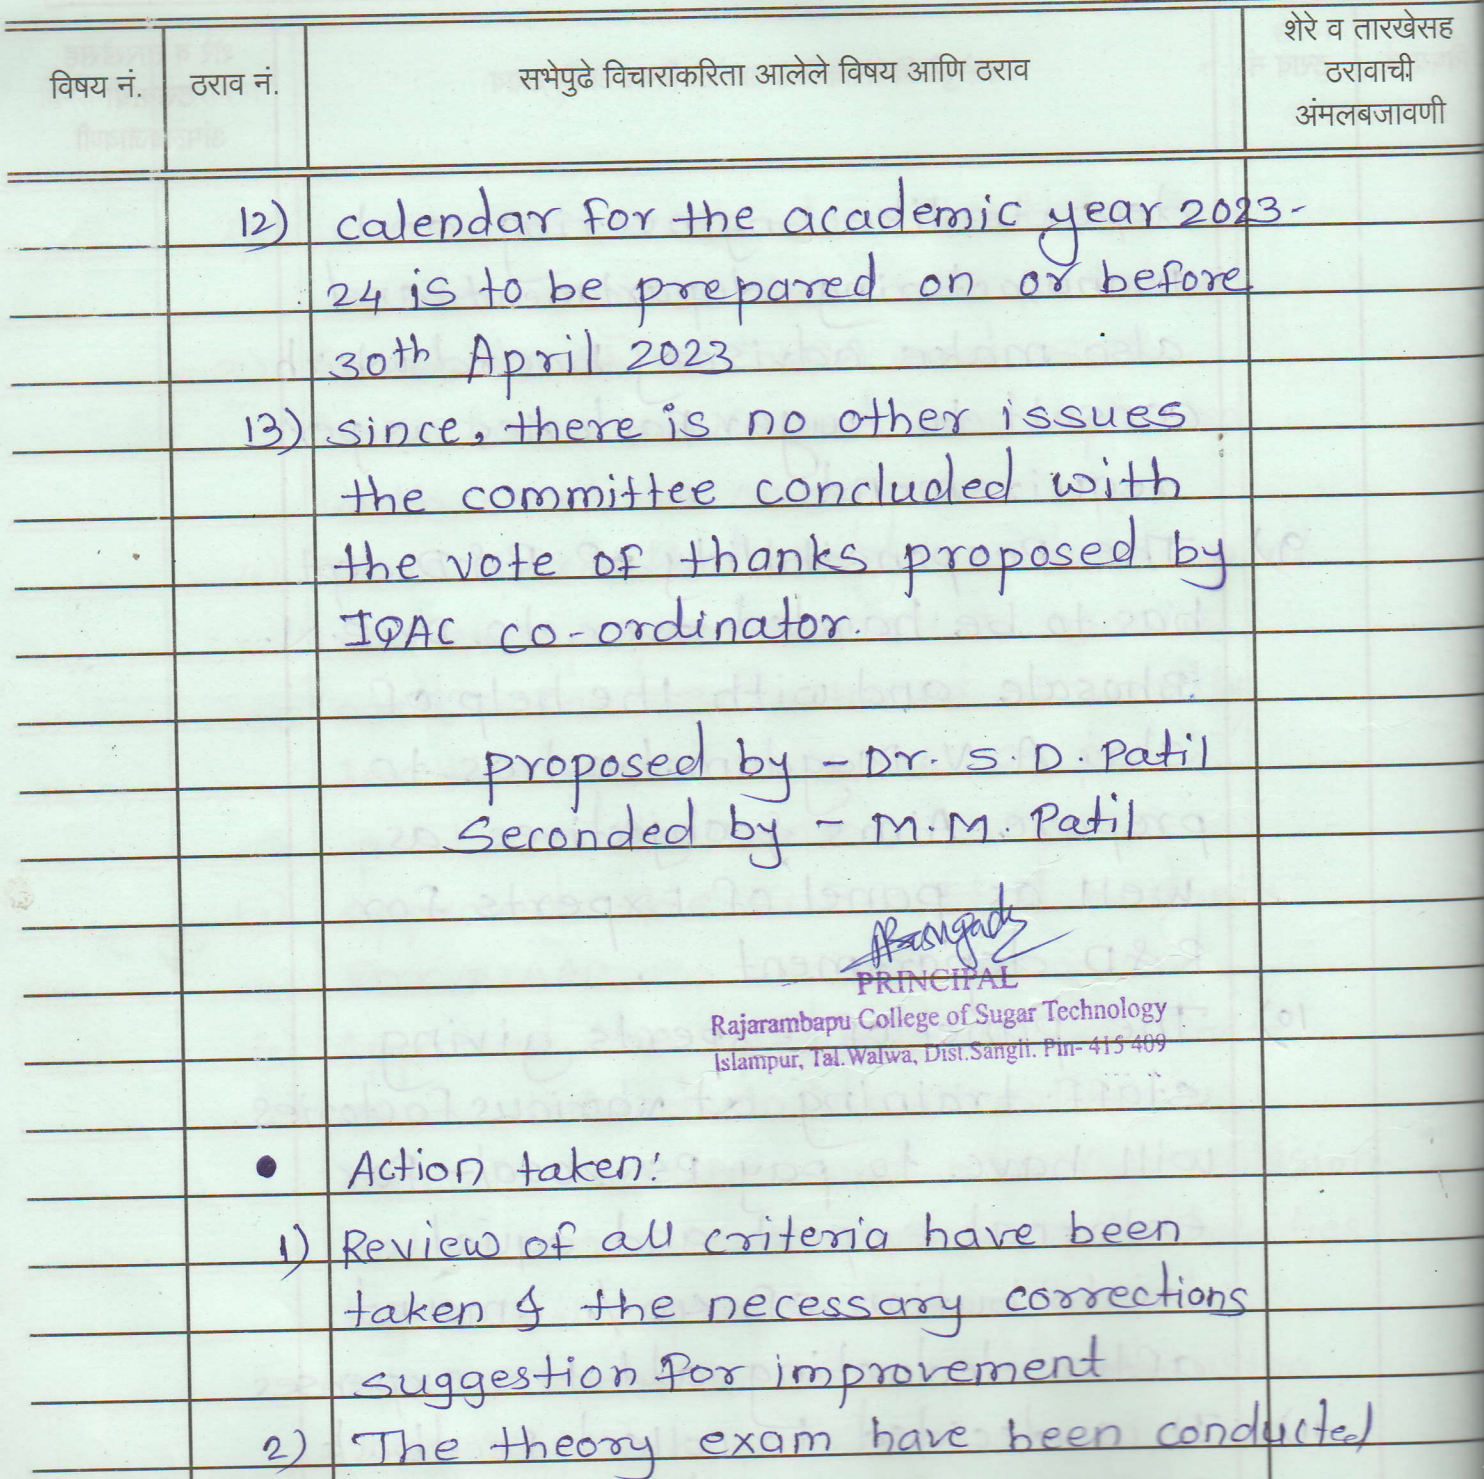 विषय नं. ठराव नं. सभेपुढे विचाराकरिता आलेले विषय आणि ठराव शेरे व तारखेसह
ठरावाची
अंमलबजावणी
12) calendar for the academic year 2023-
24 is to be prepared on or before
30th April 2023
13) since, there is no other issues
the committee concluded with
the vote of thanks proposed by
IQAC co-ordinator.
proposed by - Dr. S. D. Patil
Seconded by - M. M. Patil
PRINCIPAL
Rajarambapu College of Sugar Technology
Islampur, Tal. Walwa, Dist. Sangli. Pin- 415 409
• Action taken:
1) Review of all criteria have been
taken & the necessary corrections
suggestion for improvement
2) The theory exam have been conducted